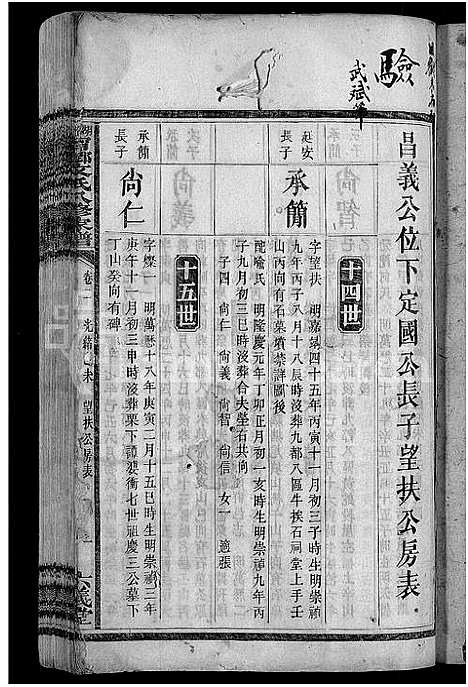 驗
武斌筆
昌義公位下定國公長子望扶公房表
十四世
廷安
長子
承簡
字望扶 明嘉靖四十五年丙寅十一月初三子時生明崇禎
九年丙子八月十八辰時沒葬九都八區牛挨石祠堂上手壬
山丙向有石墓墳禁詳圖後
配喻氏 明隆慶元年丁卯正月初一亥時生明崇禎九年丙
子九月初三丑時沒葬合夫塋右共向
子四 尚仁 尚義 尚智 尚信 女一 適張
十五世
承簡
長子
尚仁
字燦一 明萬曆十八年庚寅二月十五巳時生明崇禎三年
庚午十一月初三申時沒葬栗下譚婆衝七世祖慶三公墓下
丁山癸向有碑
氏八修家譜
卷二
光緒
未
望扶公房表
六義堂